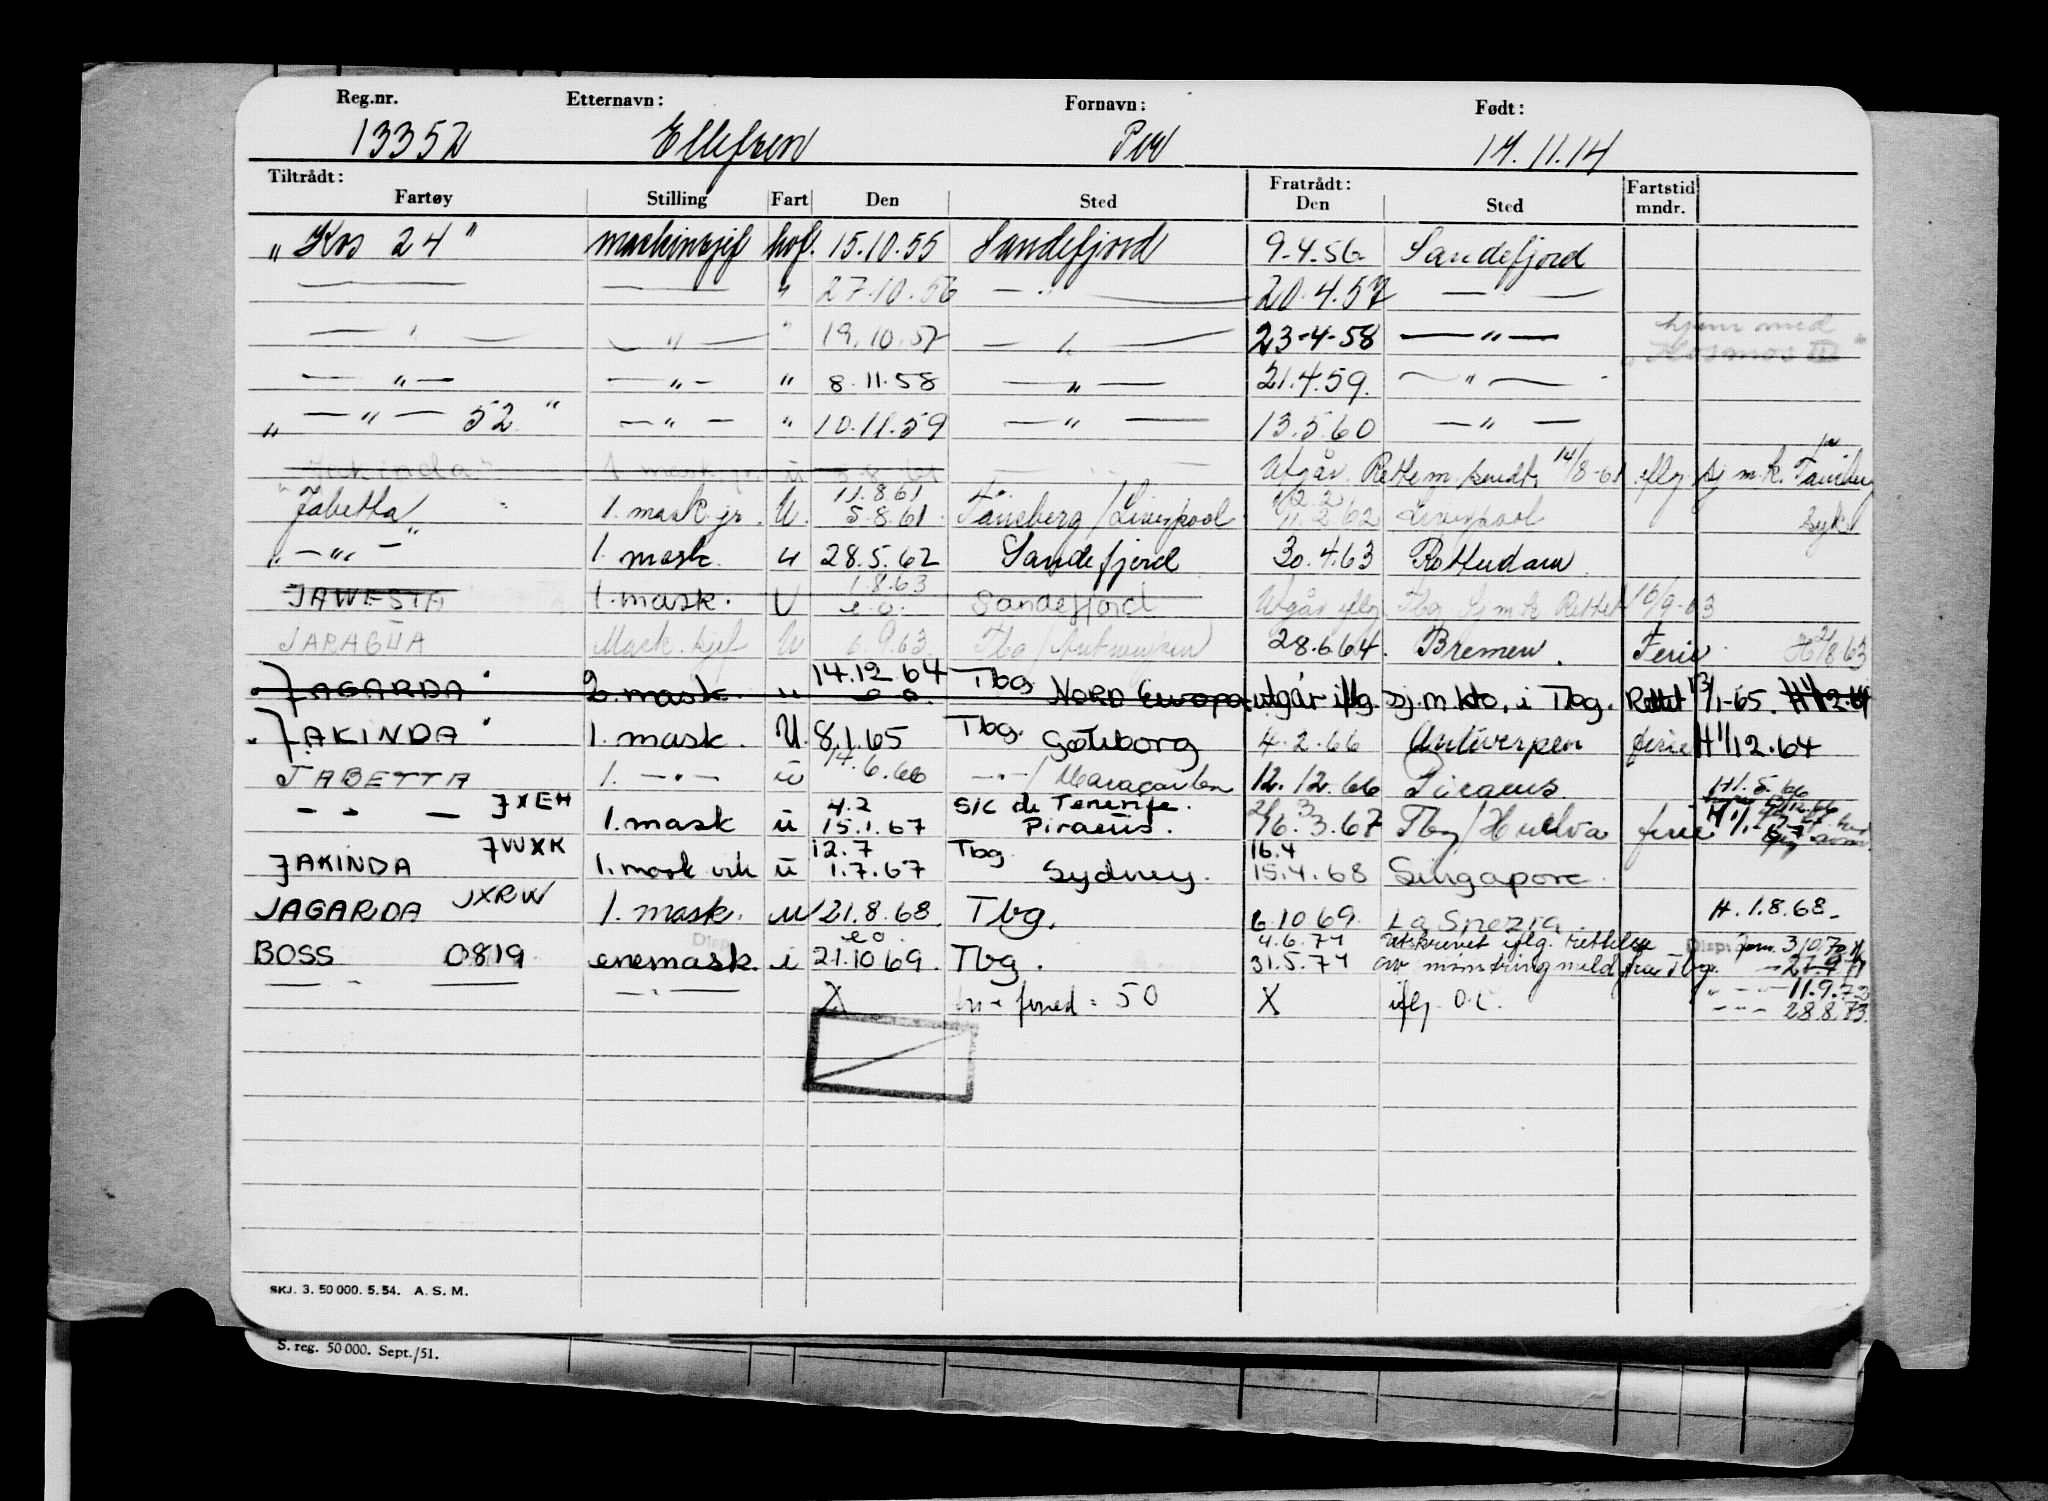 Reg.nr. Etternavn: Fornavn: Født:
13352 Ellefsen Per 17.11.14
Tiltrådt: Fratrådt: Fartstid
Fartøy Stilling Fart Den Sted Den Sted mndr.
„ Kos 24 " maskinsjef hvf. 15.10.55 Sandefjord 9.4.56 Sandefjord
— — " 27.10.56 — " — 20.4.57 — —
— " — — " — " 19.10.57 — " — 23-4-58 — " — hjem med
„ Kosmos III "
— " — — " — " 8.11.58 — " — 21.4.59. — " —
„ — " — 52 " — " — " 10.11.59 — " — 13.5.60 — " —
Jakinda" 1 mask. jr. u Utgår. Rette m. sendt. 14/8-61 iflg. sj m.k. Tønsberg
11.8.61 12.2
Jabetta 1. mask. jr. U. 5.8.61 Tønsberg / Liverpool 11.2.62 Liverpool syk
„ — " — " 1. mask. u 28.5.62 Sandefjord 30.4.63 Rotterdam
1.8.63
JAWESTA 1. mask. U e.o. Sandefjord Utgår iflg. Tbg Sj m k Rettet 16/9-63
JARAGUA Mask. sjef U 6.9.63 Tbg / Antwerpen 28.6.64. Bremen. Ferie H 2/8 63
14.12.64 Tbg
„ JAGARDA " 2. mask. u e o. NORD Europa utgår iflg. sj.m.kto. i Tbg. Rettet 13/1-65. H 1/12-64
„ JAKINDA " 1. mask. U. 8.1.65 Tbg. Göteborg 4.2.66 Antwerpen ferie H 1/12.64
JABETTA 1. — " — u 14.6.66 — " — / Maracaibo 12.12.66 Piraeus. H 1.5.66
— " — JXEH 4.2 S/C de Tenerife.
1. mask u 15.1.67 Piraeus. 26.3.67 Tbg / Huelva ferie
JWXK 12.7 Tbg 16.4
JAKINDA 1. mask vik u 1.7.67 Sydney. 15.4.68 Singapore.
JAGARDA JXRW 1. mask. u 21.8.68 Tbg. 6.10.69. La Spezia H. 1.8.68-
e o. 4.6.74 Utskrevet iflg. rettelse Disp. 3/0.70
BOSS 0819 enemask. i 21.10.69. Tbg. 31.5.74 av mønstringmeld fra Tbg. — 27.9.71
— " — — — " — X = 50 X iflg. O.C. " — 11.9.72
— " — 28.8.73.
SKJ. 3. 50 000. 5. 54. A. S. M.
S. reg. 50 000. Sept./51.